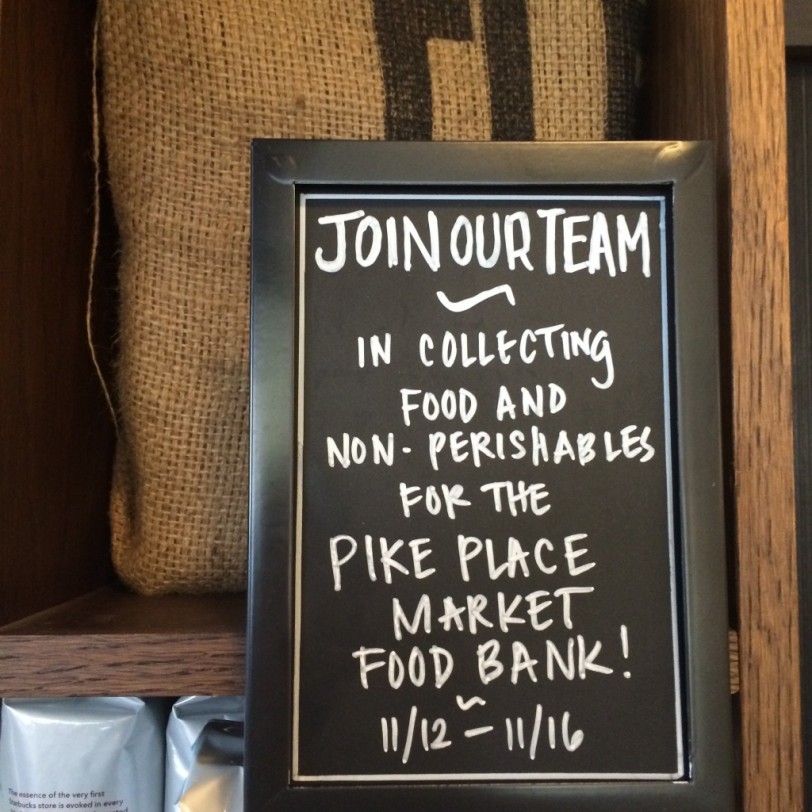 JOIN OUR TEAM
IN COLLECTING
FOOD AND
NON-PERISHABLES
FOR THE
PIKE PLACE
MARKET
FOOD BANK!
11/12 - 11/16
The essence of the very first
Starbucks store is evoked in every